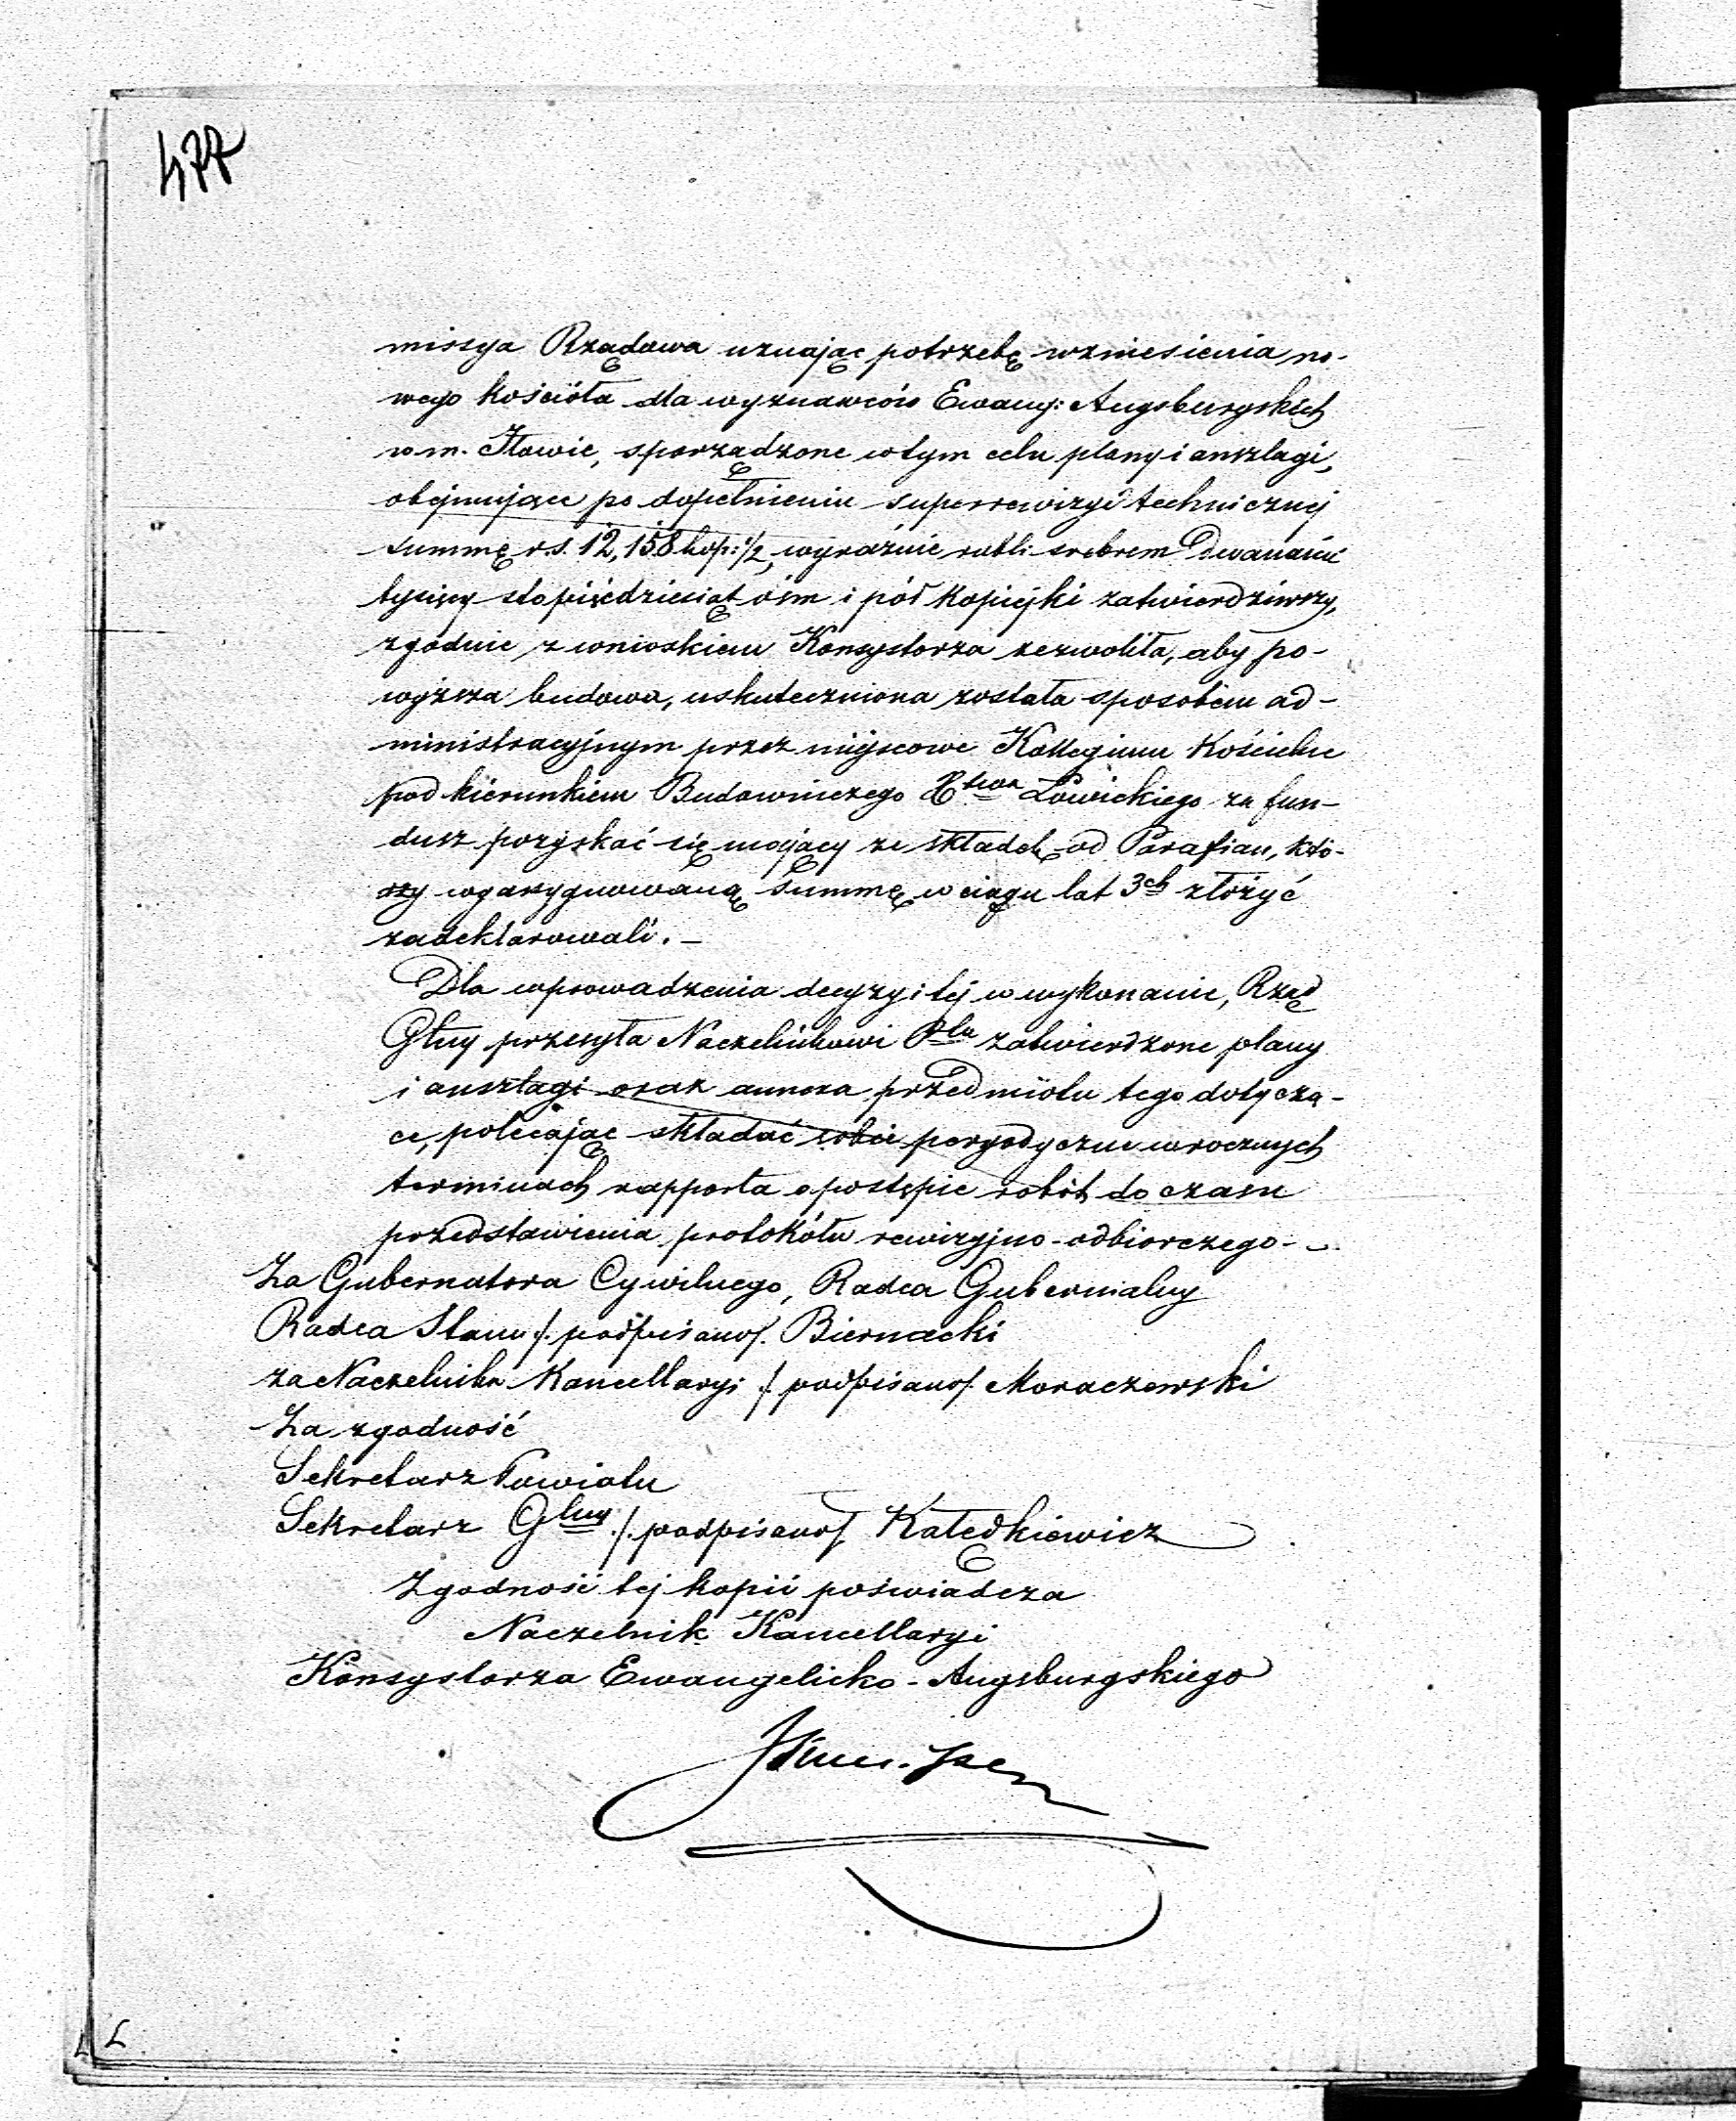 477
missya Rządowa uznając potrzebę wzniesienia no-
wego kościoła dla wyznawców Ewang: Augsburgskich
w m. Iłowie, sporządzone w tym celu plany i anszlagi,
obejmujące po dopełnieniu superrewizyi technicznej
summę r.s. 12,158 kop: ½, wyraźnie rubli srebrem Dwanaście
tysięcy stopięćdziesiąt ośm i pół kopiejki zatwierdziwszy,
zgodnie z wnioskiem Konsystorza zezwoliła, aby po-
wyższa budowa, uskuteczniona została sposobem ad-
ministracyjnym przez miejscowe Kollegium Kościelne
pod kierunkiem Budowniczego Łowickiego za fun-
dusz pozyskać się mający ze składek od Parafian, któ-
rzy wyasygnowaną summę w ciągu lat 3ch złożyć
zadeklarowali. —
Dla wprowadzenia decyzyi tej w wykonanie, Rząd
Glny przesyła Naczelnikowi Ptu zatwierdzone plany
i anszlagi oraz annexa przedmiotu tego dotyczą-
ce, polecając składać sobie peryodyczne w rocznych
terminach rapporta o postępie robót do czasu
przedstawienia protokółu rewizyjno-odbiorczego. —
Za Gubernatora Cywilnego, Radca Gubernialny
Radca Stanu /. podpisano /. Biernacki
za Naczelnika Kancellaryi /. podpisano /. Moraczewski
Za zgodność
Sekretarz Powiatu
Sekretarz Glny /. podpisano / Kałedkiewicz
Zgodność tej kopii poświadcza
Naczelnik Kancellaryi
Konsystorza Ewangelicko-Augsburgskiego